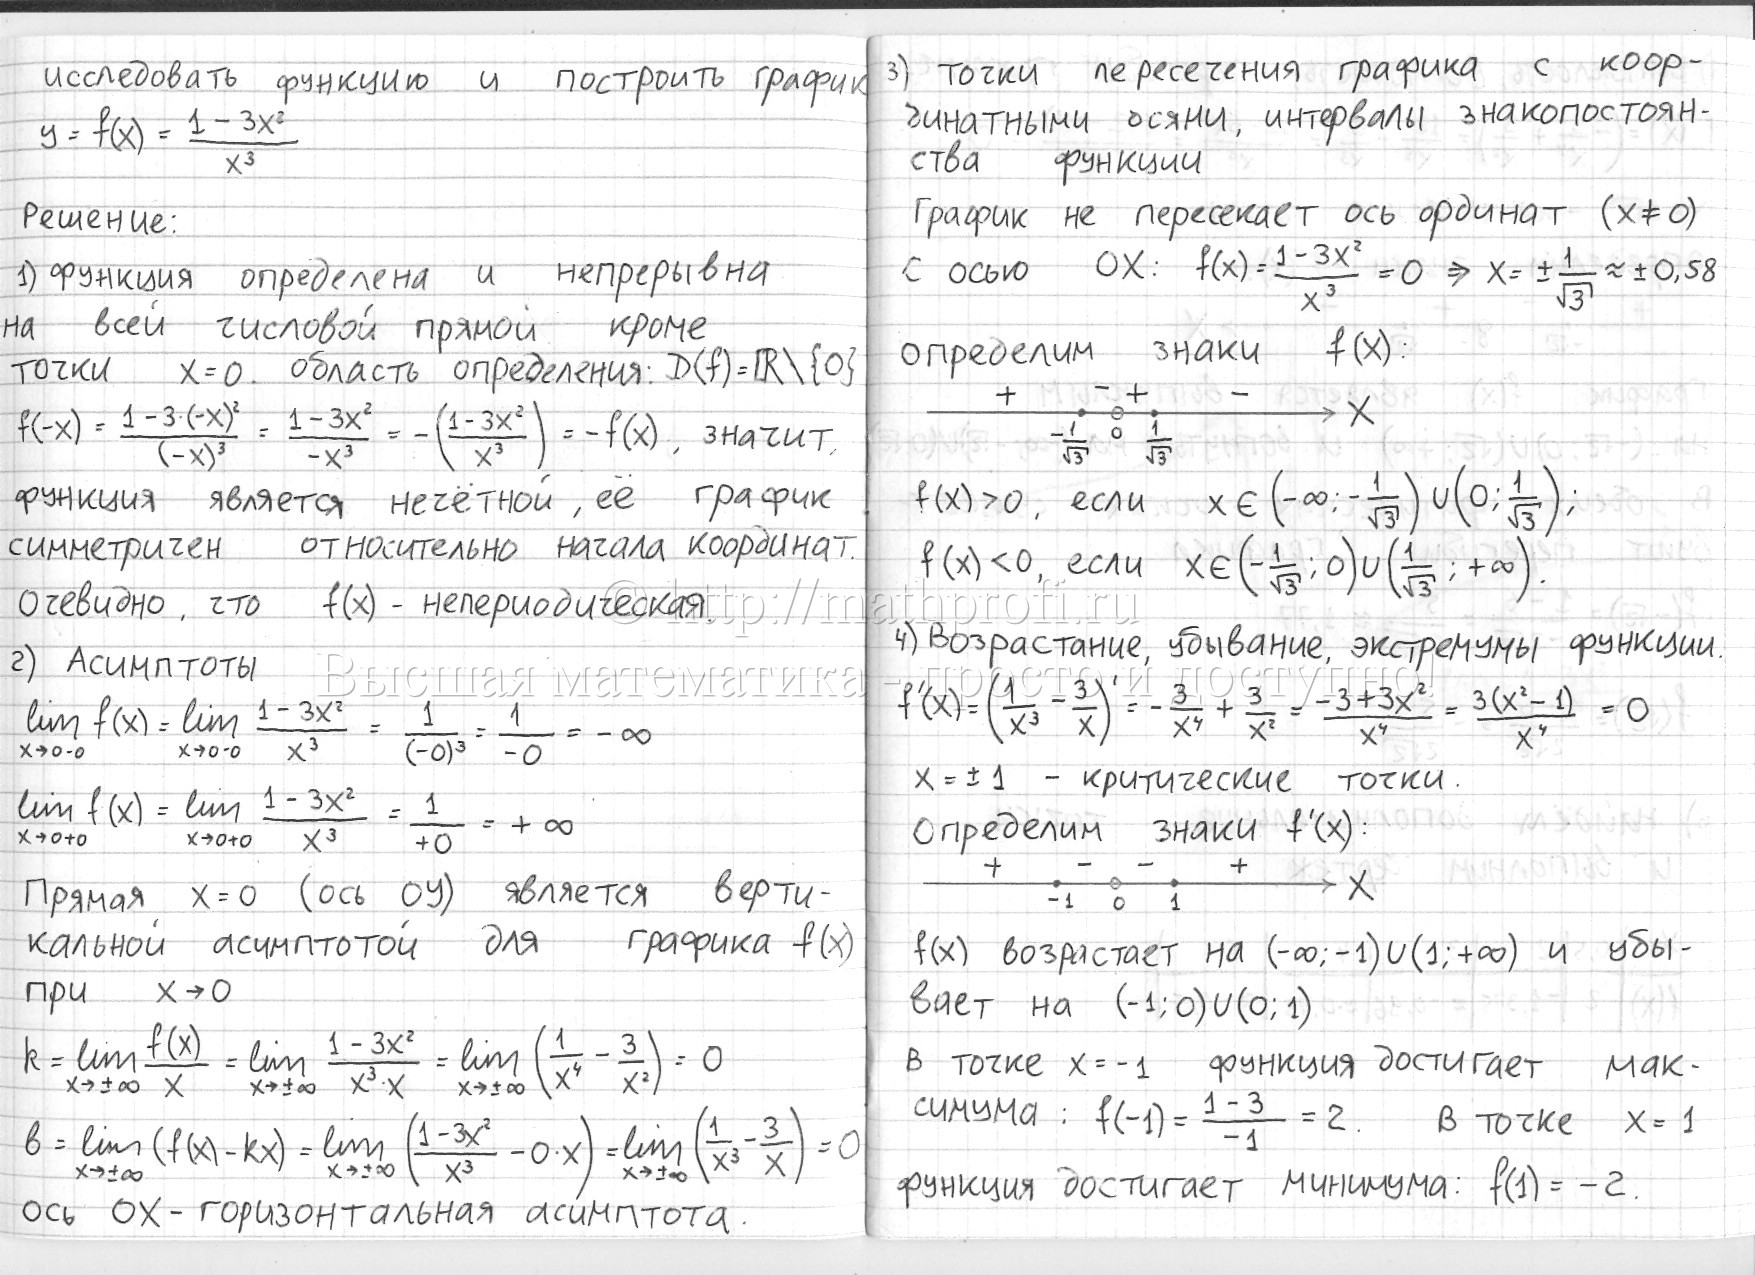 исследовать функцию и построить график
y = f(x) = (1 - 3x²)/x³
Решение:
1) Функция определена и непрерывна
на всей числовой прямой кроме
точки x=0. область определения: D(f)=ℝ\{0}
f(-x) = (1-3·(-x)²)/(-x)³ = (1-3x²)/(-x³) = -((1-3x²)/x³) = -f(x), значит,
функция является нечётной, её график
симметричен относительно начала координат.
Очевидно, что f(x) - непериодическая
2) Асимптоты
lim x→0-0 f(x) = lim x→0-0 (1-3x²)/x³ = 1/(-0)³ = 1/-0 = -∞
lim x→0+0 f(x) = lim x→0+0 (1-3x²)/x³ = 1/+0 = +∞
Прямая x=0 (ось OY) является верти-
кальной асимптотой для графика f(x)
при x→0
k = lim x→±∞ f(x)/x = lim x→±∞ (1-3x²)/(x³·x) = lim x→±∞ (1/x⁴ - 3/x²) = 0
b = lim x→±∞ (f(x)-kx) = lim x→±∞ ((1-3x²)/x³ - 0·x) = lim x→±∞ (1/x³ - 3/x) = 0
ось OX - горизонтальная асимптота.
3) Точки пересечения графика с коор-
динатными осями, интервалы знакопостоян-
ства функции
График не пересекает ось ординат (x≠0)
С осью OX: f(x) = (1-3x²)/x³ = 0 ⇒ x = ±1/√3 ≈ ±0,58
Определим знаки f(x):
+ - + - X
-1/√3 0 1/√3
f(x)>0, если x∈(-∞; -1/√3)∪(0; 1/√3);
f(x)<0, если x∈(-1/√3; 0)∪(1/√3; +∞).
4) Возрастание, убывание, экстремумы функции.
f'(x) = (1/x³ - 3/x)' = -3/x⁴ + 3/x² = (-3+3x²)/x⁴ = 3(x²-1)/x⁴ = 0
x = ±1 - критические точки.
Определим знаки f'(x):
+ - - + X
-1 0 1
f(x) возрастает на (-∞;-1)∪(1;+∞) и убы-
вает на (-1;0)∪(0;1)
В точке x=-1 функция достигает мак-
симума: f(-1) = (1-3)/-1 = 2. В точке x=1
функция достигает минимума: f(1) = -2.
© http://mathprofi.ru
Высшая математика - просто и доступно!